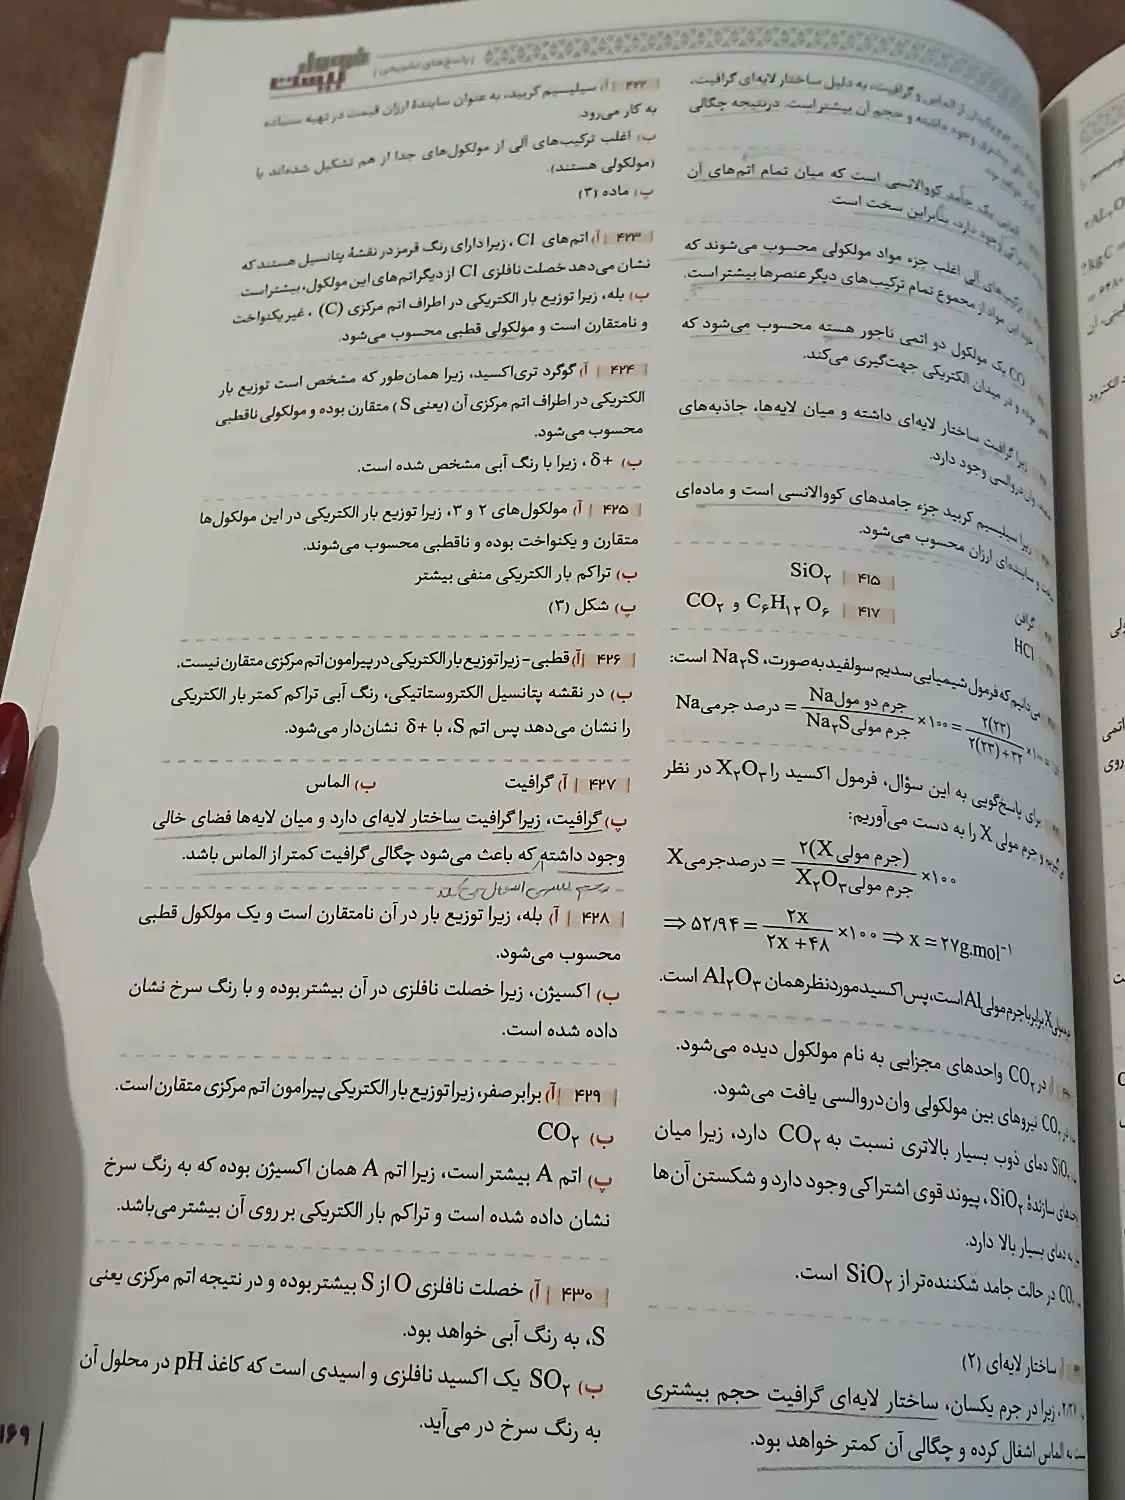 فرمول بیست | پاسخ‌های تشریحی |
از الماس و گرافیت، به دلیل ساختار لایه‌ای گرافیت،
بیشتری وجود داشته و حجم آن بیشتر است. درنتیجه چگالی
جامد کووالانسی است که میان تمام اتم‌های آن
وجود دارد، بنابراین سخت است.
ترکیب‌های آلی اغلب جزء مواد مولکولی محسوب می‌شوند که
این مواد از مجموع تمام ترکیب‌های دیگر عنصرها بیشتر است.
CO یک مولکول دو اتمی ناجور هسته محسوب می‌شود که
بوده و در میدان الکتریکی جهت‌گیری می‌کند.
زیرا گرافیت ساختار لایه‌ای داشته و میان لایه‌ها، جاذبه‌های
وان‌دروالسی وجود دارد.
زیرا سیلیسیم کربید جزء جامدهای کووالانسی است و ماده‌ای
و ساینده‌ای ارزان محسوب می‌شود.
۴۱۵ | SiO۲
گرافن
۴۱۷ | C۶H۱۲O۶ و CO۲
HCl
می‌دانیم که فرمول شیمیایی سدیم سولفید به‌صورت، Na۲S است:
درصد جرمی Na = جرم دو مول Na / جرم مولی Na۲S ×۱۰۰ = ۲(۲۳) / ۲(۲۳)+۳۲ ×۱۰۰
برای پاسخ‌گویی به این سؤال، فرمول اکسید را X۲O۳ در نظر
و جرم مولی X را به دست می‌آوریم:
درصد جرمی X = ۲(جرم مولی X) / جرم مولی X۲O۳ ×۱۰۰
⇒ ۵۲/۹۴ = ۲x / ۲x+۴۸ ×۱۰۰ ⇒ x = ۲۷g.mol⁻¹
X برابر با جرم مولی Al است، پس اکسید مورد نظر همان Al۲O۳ است.
در CO۲ واحدهای مجزایی به نام مولکول دیده می‌شود.
CO۲ نیروهای بین مولکولی وان‌دروالسی یافت می‌شود.
SiO۲ دمای ذوب بسیار بالاتری نسبت به CO۲ دارد، زیرا میان
سازندهٔ SiO۲، پیوند قوی اشتراکی وجود دارد و شکستن آن‌ها
به دمای بسیار بالا دارد.
CO۲ در حالت جامد شکننده‌تر از SiO۲ است.
ساختار لایه‌ای (۲)
زیرا در جرم یکسان، ساختار لایه‌ای گرافیت حجم بیشتری
به الماس اشغال کرده و چگالی آن کمتر خواهد بود.
۴۲۲ | آ) سیلیسیم کربید، به عنوان سایندهٔ ارزان قیمت در تهیه سنباده
به کار می‌رود.
ب) اغلب ترکیب‌های آلی از مولکول‌های جدا از هم تشکیل شده‌اند یا
(مولکولی هستند).
پ) ماده (۳)
۴۲۳ | آ) اتم‌های Cl، زیرا دارای رنگ قرمز در نقشهٔ پتانسیل هستند که
نشان می‌دهد خصلت نافلزی Cl از دیگر اتم‌های این مولکول، بیشتر است.
ب) بله، زیرا توزیع بار الکتریکی در اطراف اتم مرکزی (C)، غیر یکنواخت
و نامتقارن است و مولکولی قطبی محسوب می‌شود.
۴۲۴ | آ) گوگرد تری‌اکسید، زیرا همان‌طور که مشخص است توزیع بار
الکتریکی در اطراف اتم مرکزی آن (یعنی S) متقارن بوده و مولکولی ناقطبی
محسوب می‌شود.
ب) δ+، زیرا با رنگ آبی مشخص شده است.
۴۲۵ | آ) مولکول‌های ۲ و ۳، زیرا توزیع بار الکتریکی در این مولکول‌ها
متقارن و یکنواخت بوده و ناقطبی محسوب می‌شوند.
ب) تراکم بار الکتریکی منفی بیشتر
پ) شکل (۳)
۴۲۶ | آ) قطبی - زیرا توزیع بار الکتریکی در پیرامون اتم مرکزی متقارن نیست.
ب) در نقشه پتانسیل الکتروستاتیکی، رنگ آبی تراکم کمتر بار الکتریکی
را نشان می‌دهد پس اتم S، با δ+ نشان‌دار می‌شود.
۴۲۷ | آ) گرافیت ب) الماس
پ) گرافیت، زیرا گرافیت ساختار لایه‌ای دارد و میان لایه‌ها فضای خالی
وجود داشته که باعث می‌شود چگالی گرافیت کمتر از الماس باشد.
۴۲۸ | آ) بله، زیرا توزیع بار در آن نامتقارن است و یک مولکول قطبی
محسوب می‌شود.
ب) اکسیژن، زیرا خصلت نافلزی در آن بیشتر بوده و با رنگ سرخ نشان
داده شده است.
۴۲۹ | آ) برابر صفر، زیرا توزیع بار الکتریکی پیرامون اتم مرکزی متقارن است.
ب) CO۲
پ) اتم A بیشتر است، زیرا اتم A همان اکسیژن بوده که به رنگ سرخ
نشان داده شده است و تراکم بار الکتریکی بر روی آن بیشتر می‌باشد.
۴۳۰ | آ) خصلت نافلزی O از S بیشتر بوده و در نتیجه اتم مرکزی یعنی
S، به رنگ آبی خواهد بود.
ب) SO۲ یک اکسید نافلزی و اسیدی است که کاغذ pH در محلول آن
به رنگ سرخ در می‌آید.
۱۶۹